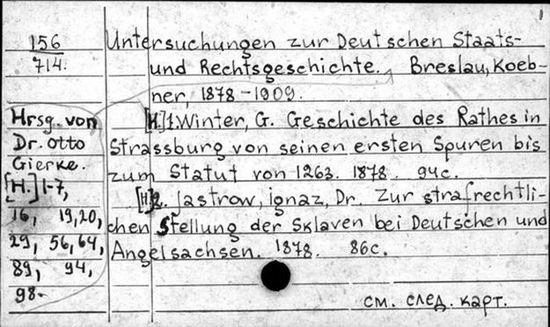 156
714.
Untersuchungen zur Deutschen Staats-
und Rechtsgeschichte. Breslau, Koeb-
ner, 1878-1909.
Hrsg. von
Dr. Otto
Gierke.
[H.] 1-7,
16, 19,20,
29, 56,64,
89, 94,
98-
[H.]1.Winter, G. Geschichte des Rathes in
Strassburg von seinen ersten Spuren bis
zum Statut von 1263. 1878. 94c.
[H]2. Jastrow, Ignaz, Dr. Zur strafrechtli-
chen Stellung der Sklaven bei Deutschen und
Angelsachsen. 1878. 86c.
см. след. карт.